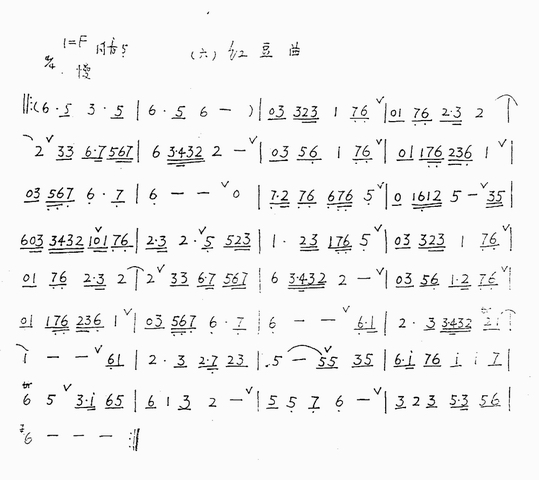 1=F 筒音5 (六) 红豆曲
4/4 慢
‖:(6·5 3·5 | 6·5 6 — ) | 03 323 1 76ˇ | 01 76 2·3 2 |
2ˇ33 6·7 567 | 6 3·432 2 —ˇ | 03 56 1 76ˇ | 01 176 236 1ˇ |
03 567 6·7 | 6 — —ˇ0 | 7·2 76 676 5ˇ | 0 1612 5 —ˇ35 |
603 3432 1ˇ01 76 | 2·3 2·ˇ5 523 | 1· 23 176 5ˇ | 03 323 1 76ˇ |
01 76 2·3 2 | 2ˇ33 6·7 567 | 6 3·432 2 —ˇ | 03 56 1·2 76ˇ |
01 176 236 1ˇ | 03 567 6·7 | 6 — —ˇ6·1 | 2·3 3432 tr |
1 — —ˇ61 | 2·3 2·7 23 | 5 —ˇ55 35 | 6·i 76 i i 7 |
tr 6 5ˇ3·i 65 | 6 1 3 2 —ˇ | 5 5 7 6 —ˇ | 3 2 3 5·3 56 |
6 — — — :‖